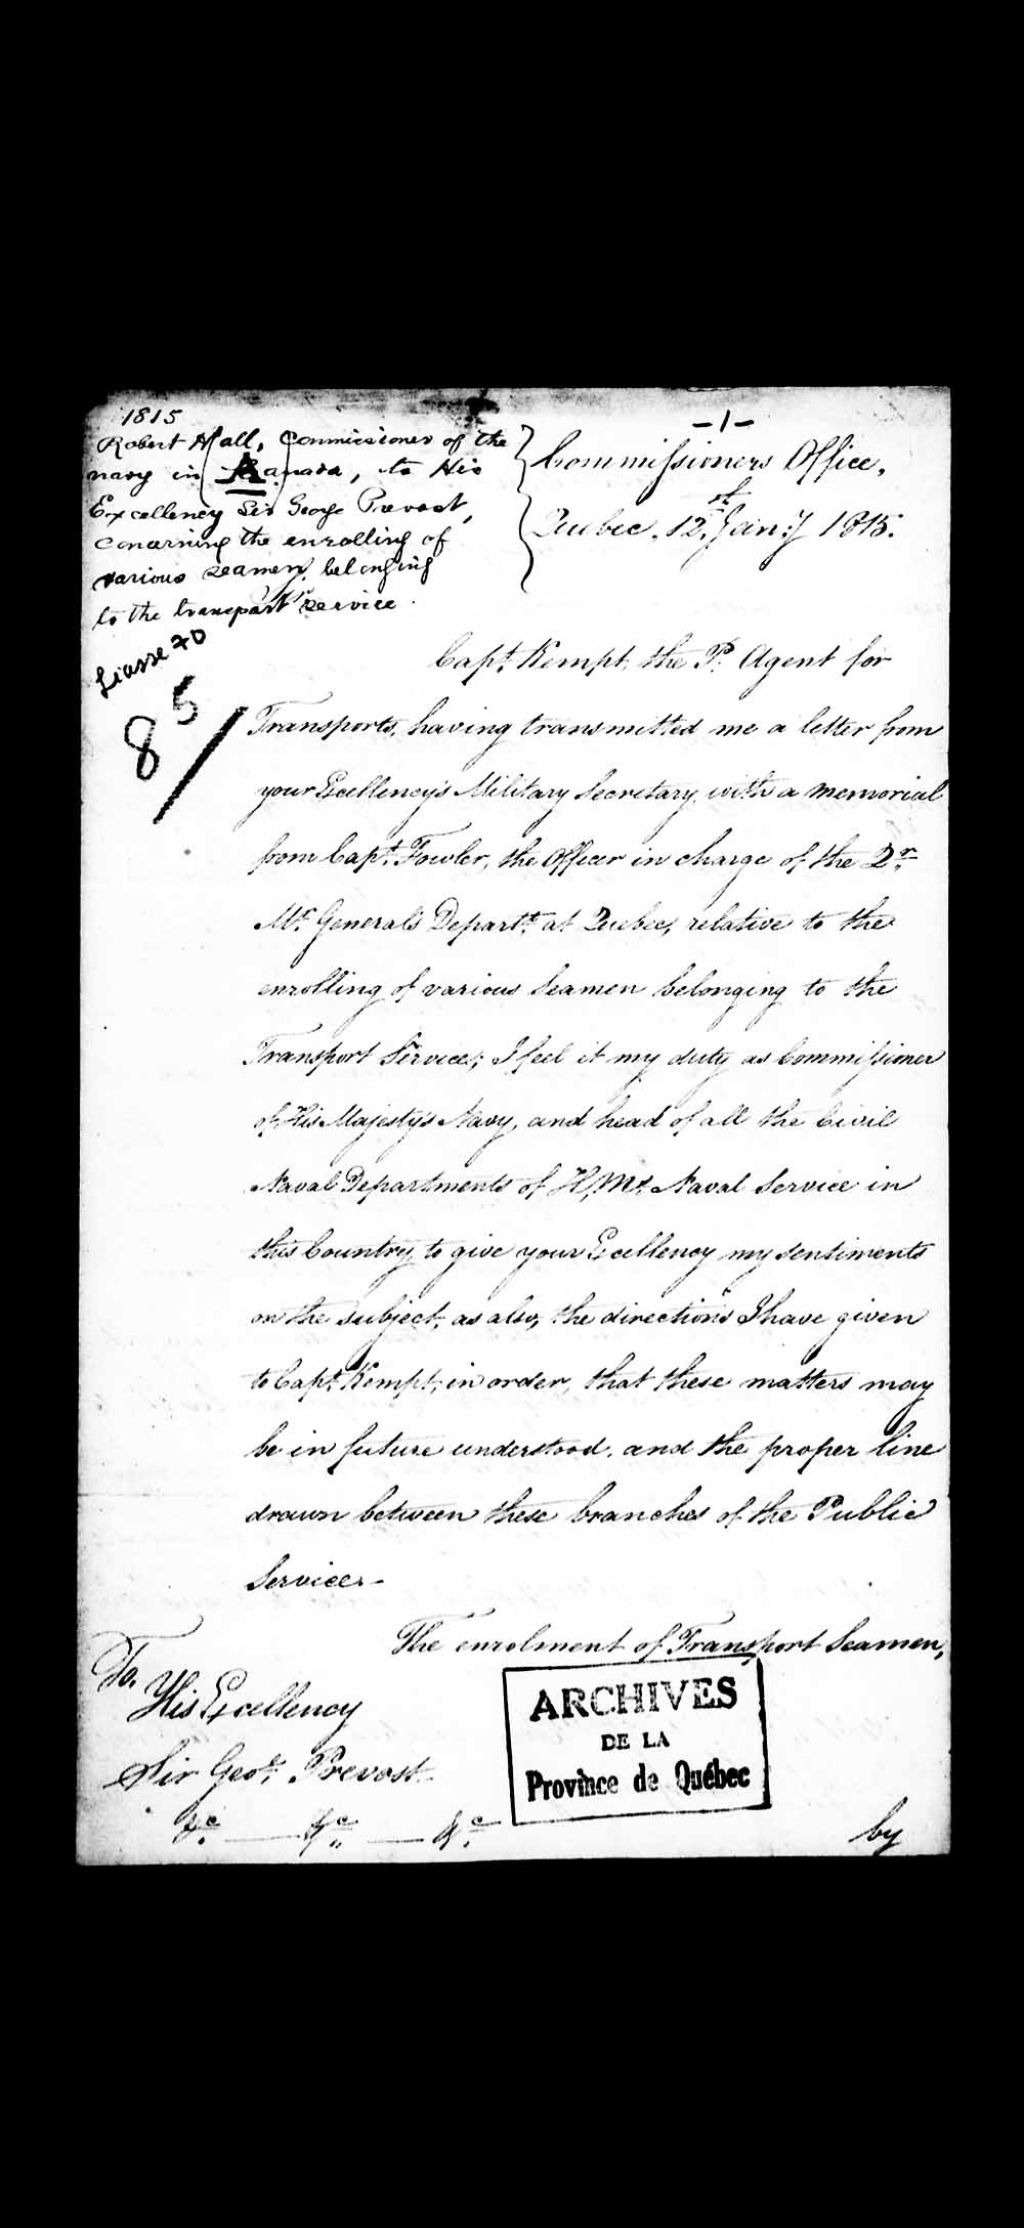 1815
Robert Hall, Commissioner of the
navy in Canada, to His
Excellency Sir George Prevost,
concerning the enrolling of
various seamen, belonging
to the transport service.
Liasse 70
85/
-1-
Commissioners Office,
Quebec. 12.st Jan:y 1815.
Capt. Kempt, the P. Agent for
Transports, having transmitted me a letter from
your Excellency's Military Secretary, with a memorial
from Capt. Fowler, the Officer in charge of the Qr.
Mr. General's Depart.t at Quebec, relative to the
enrolling of various Seamen belonging to the
Transport Service; I feel it my duty as Commissioner
of His Majesty's Navy, and head of all the Civil
Naval Departments of H, Ms, Naval Service in
this Country, to give your Excellency my sentiments
on the subject, as also, the directions I have given
to Capt. Kempt, in order, that these matters may
be in future understood, and the proper line
drawn between these branches of the Public
Service.-
The enrolment of Transport Seamen,
To,
His Excellency
Sir Geo. Prevost.
&c. — &c. — &c.
ARCHIVES
DE LA
Province de Québec
by